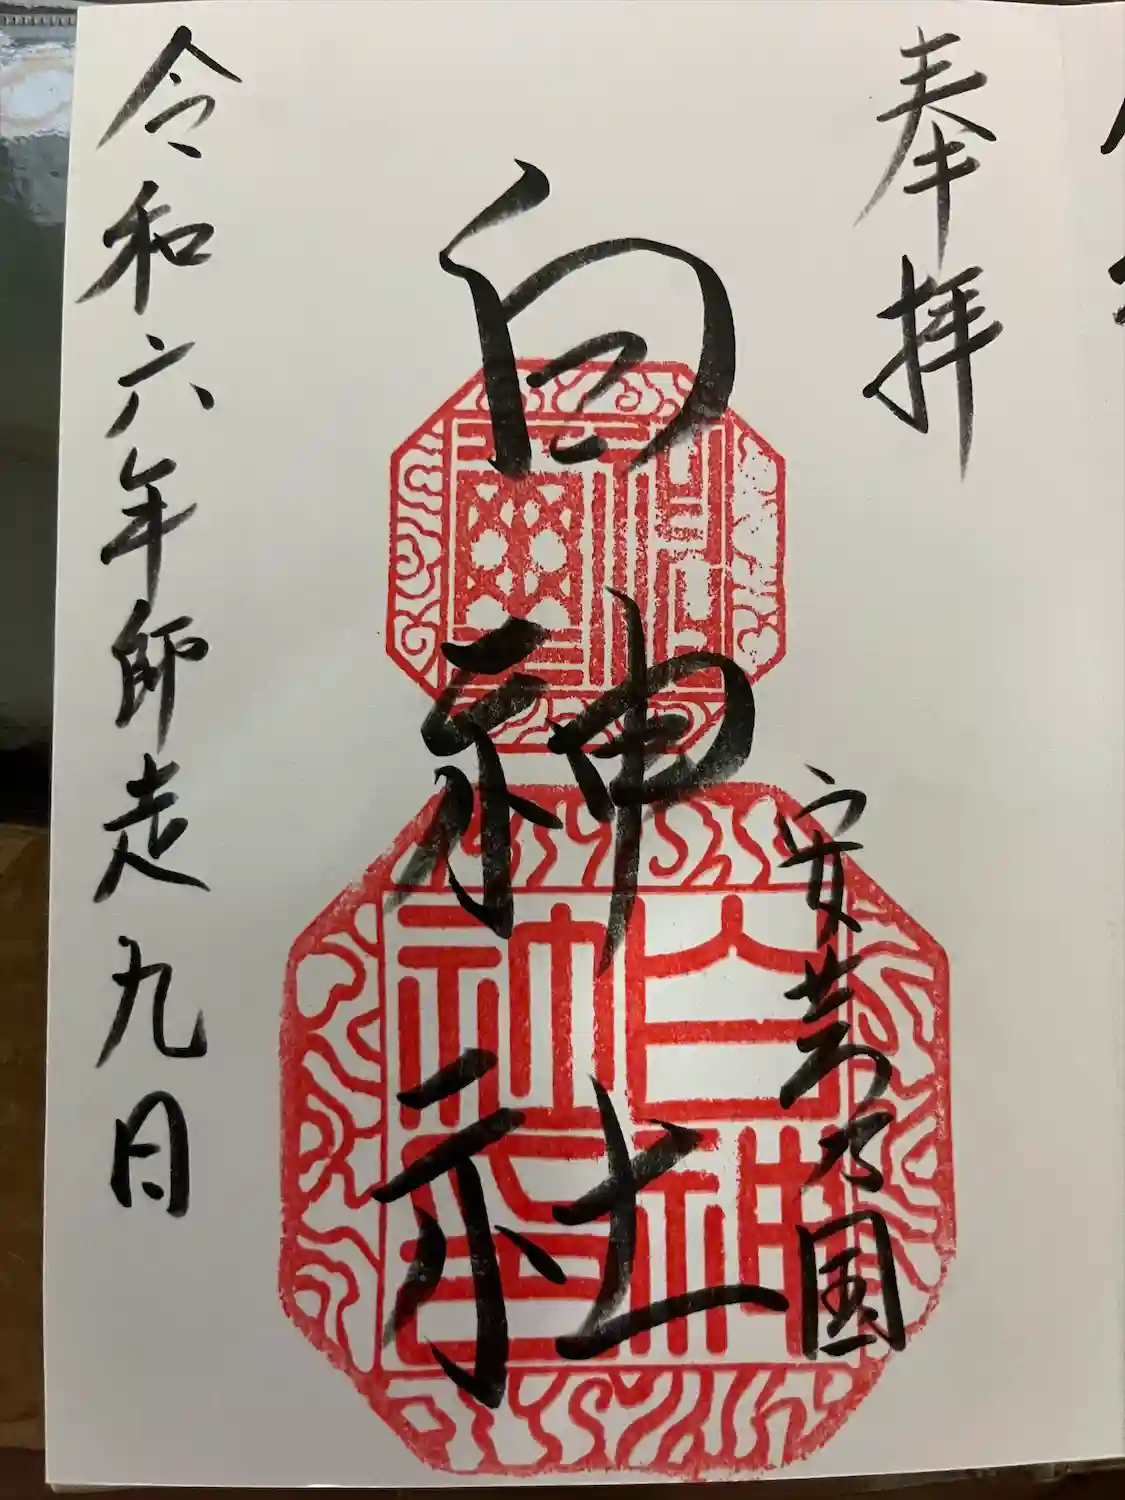 奉拝
安芸乃国
白神社
令和六年師走九日